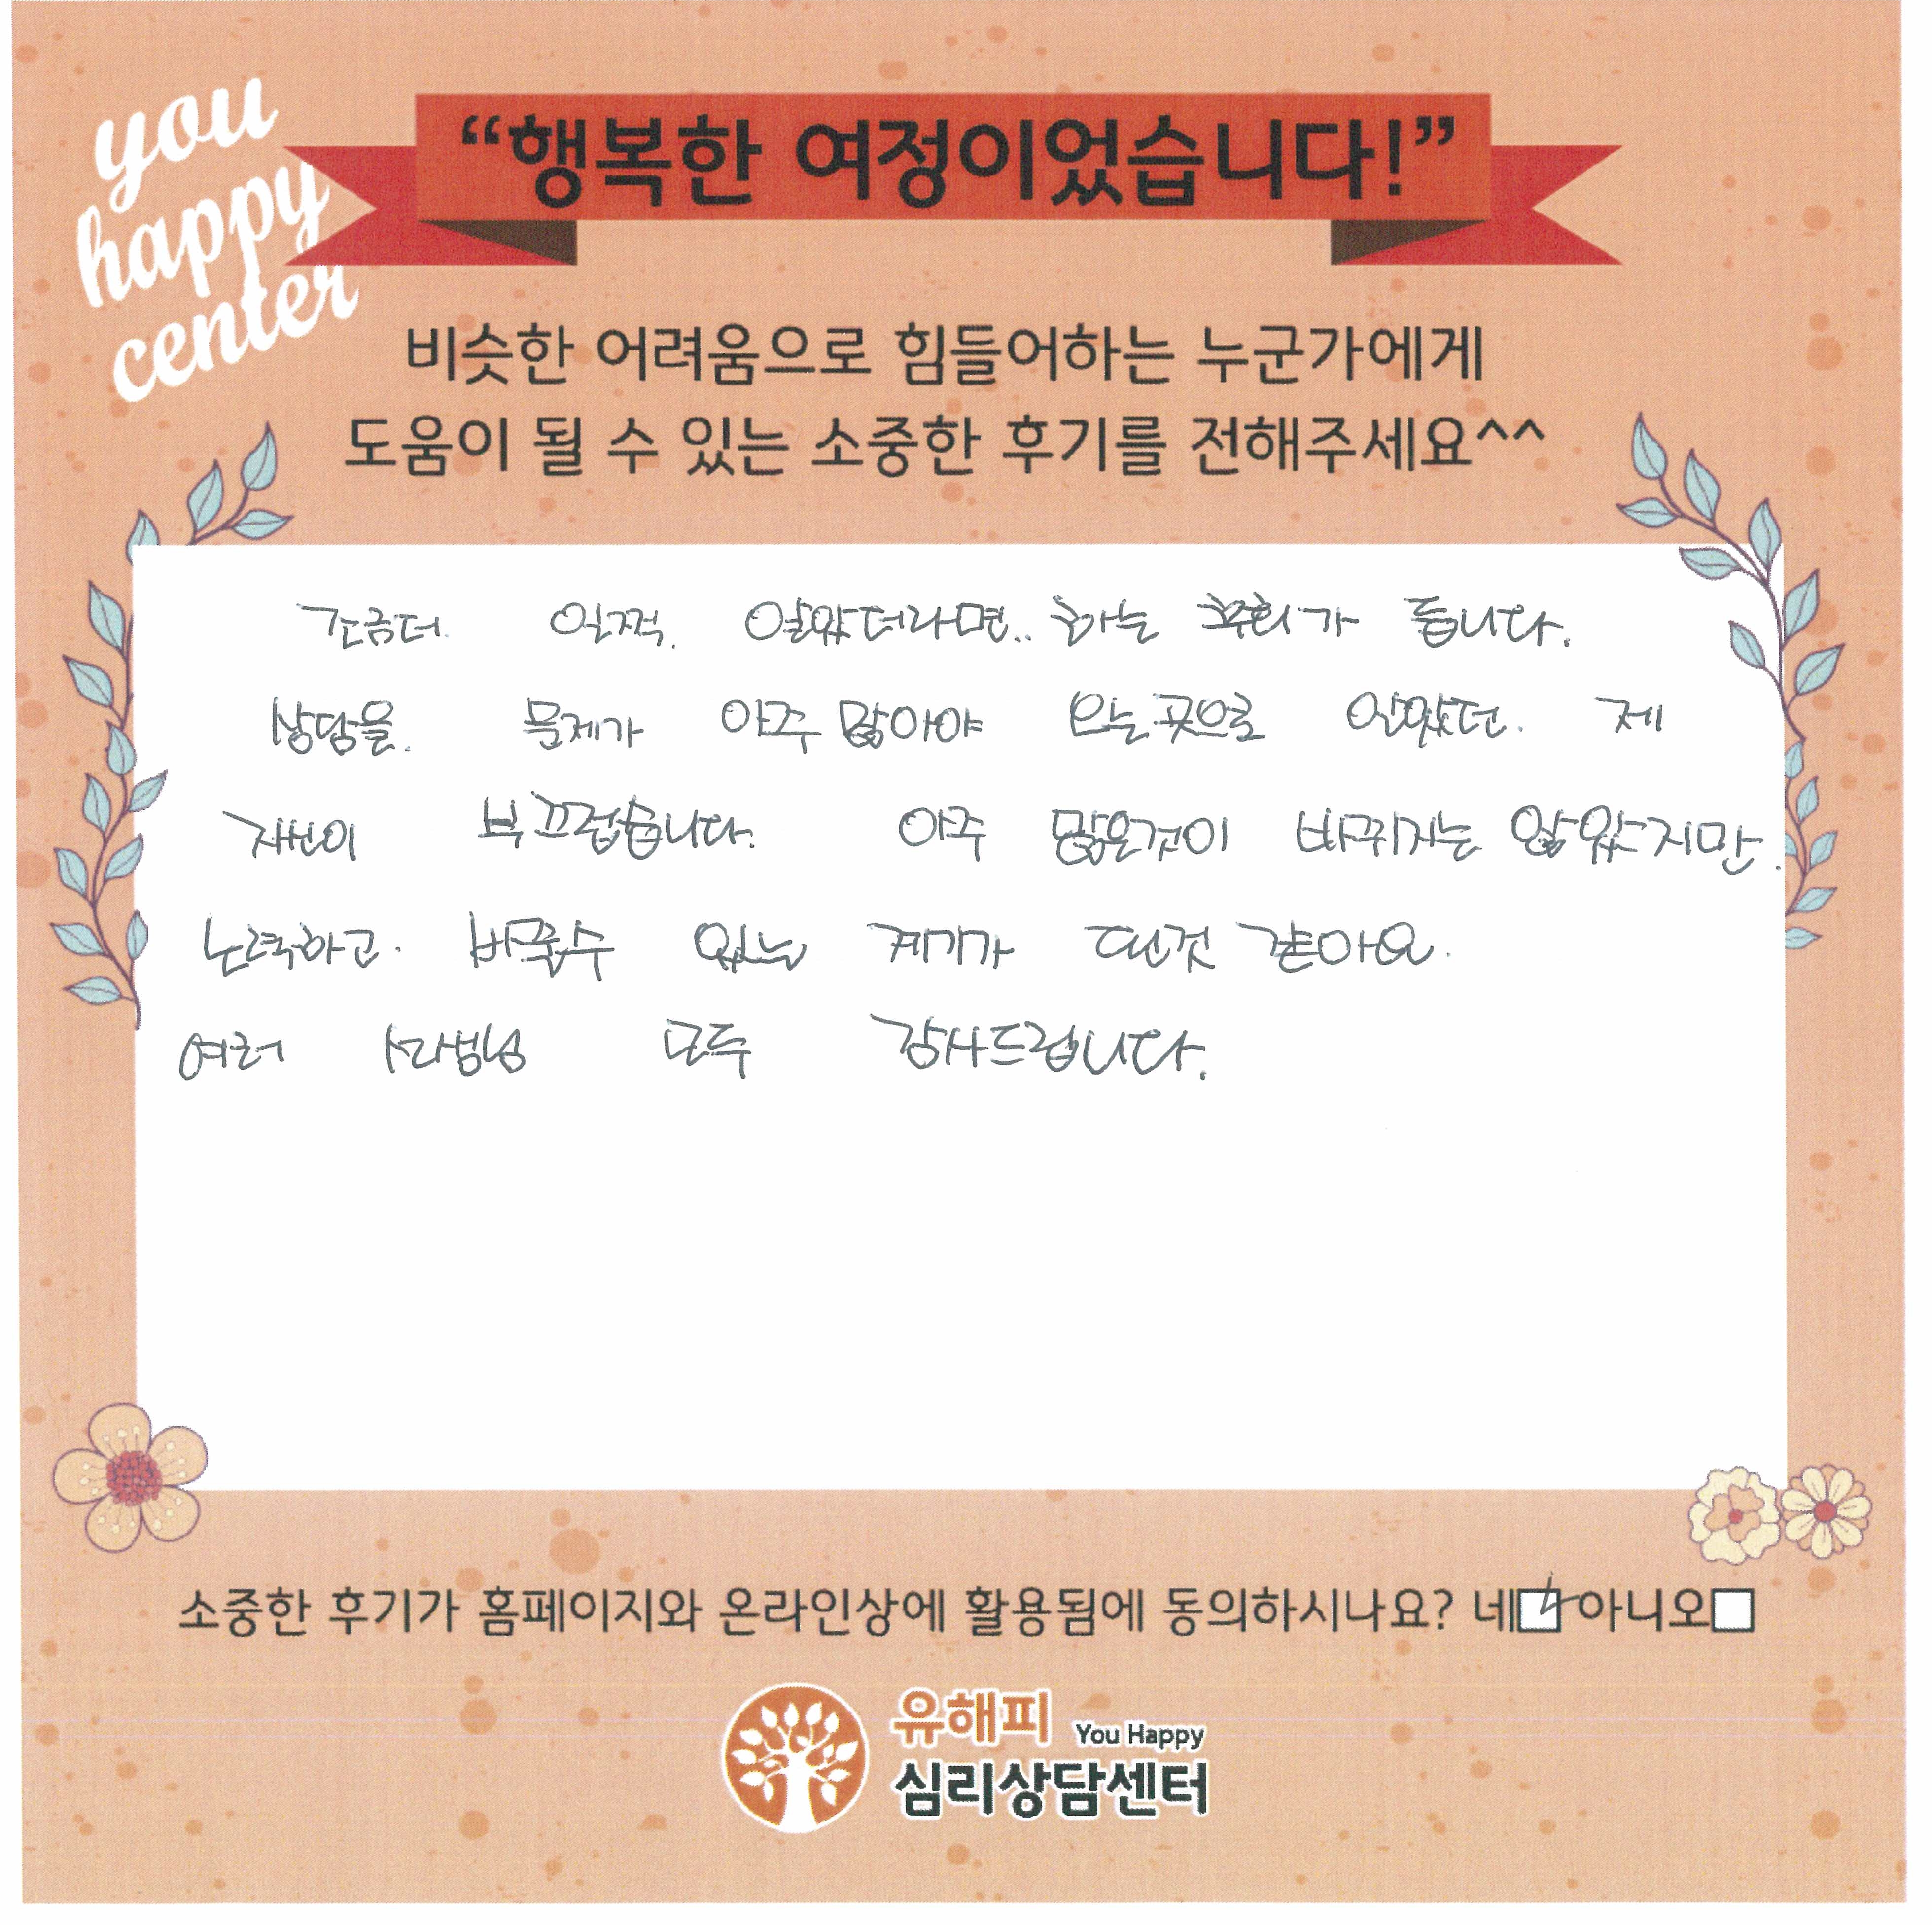 you
happy
center
“행복한 여정이었습니다!”
비슷한 어려움으로 힘들어하는 누군가에게
도움이 될 수 있는 소중한 후기를 전해주세요^^
조금더. 일찍. 알았더라면.. 하는 후회가 듭니다.
상담을. 문제가 아주 많아야 오는곳으로 알았던. 제
자신이 부끄럽습니다. 아주 많은것이 바뀌지는 않았지만.
노력하고. 바꿀수 있는 계기가 된것 같아요.
여러 선생님 모두 감사드립니다.
소중한 후기가 홈페이지와 온라인상에 활용됨에 동의하시나요? 네☑아니오□
유해피 You Happy
심리상담센터